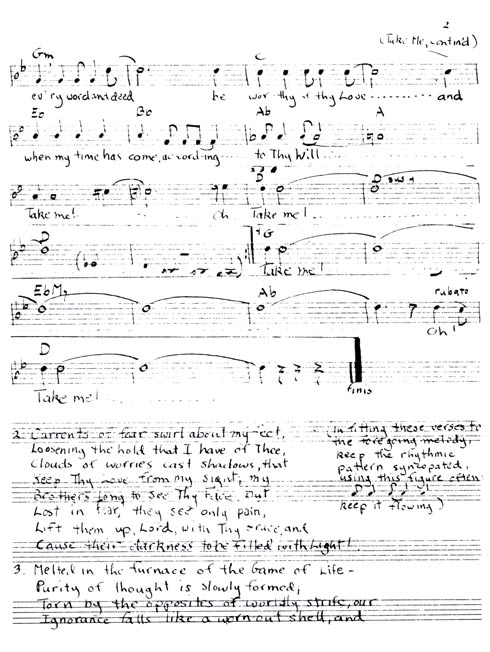 2
(Take Me, contin'd)
Gm C
ev'ry word and deed be wor thy of thy Love and
Eb Bb Ab A
when my time has come, ac cord-ing to Thy Will
D D
Take me! Oh Take me!
D G
Take me!
EbM7 Ab rubato
Oh!
D
Take me!
finis
2. Currents of fear swirl about my feet,
Loosening the hold that I have of Thee,
Clouds of worries cast shadows, that
Keep Thy Love from my sight, my
Brothers long to See Thy Face, but
Lost in fear, they see only pain,
Lift them up, Lord, with Thy Grace, and
Cause their darkness to be filled with Light!
(in fitting these verses to
the foregoing melody,
keep the rhythmic
pattern syncopated,
using this figure often:
keep it flowing)
3. Melted in the furnace of the Game of Life -
Purity of thought is slowly formed,
Torn by the opposites of worldly strife, our
Ignorance falls like a worn out shell, and